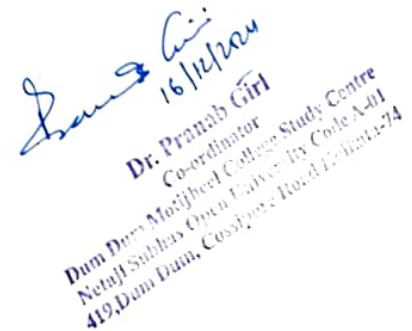 16/12/2024
Dr. Pranab Giri
Co-ordinator
Dum Dum Motijheel College Study Centre
Netaji Subhas Open University Code A-01
419, Dum Dum, Cossipore Road Kolkata-74